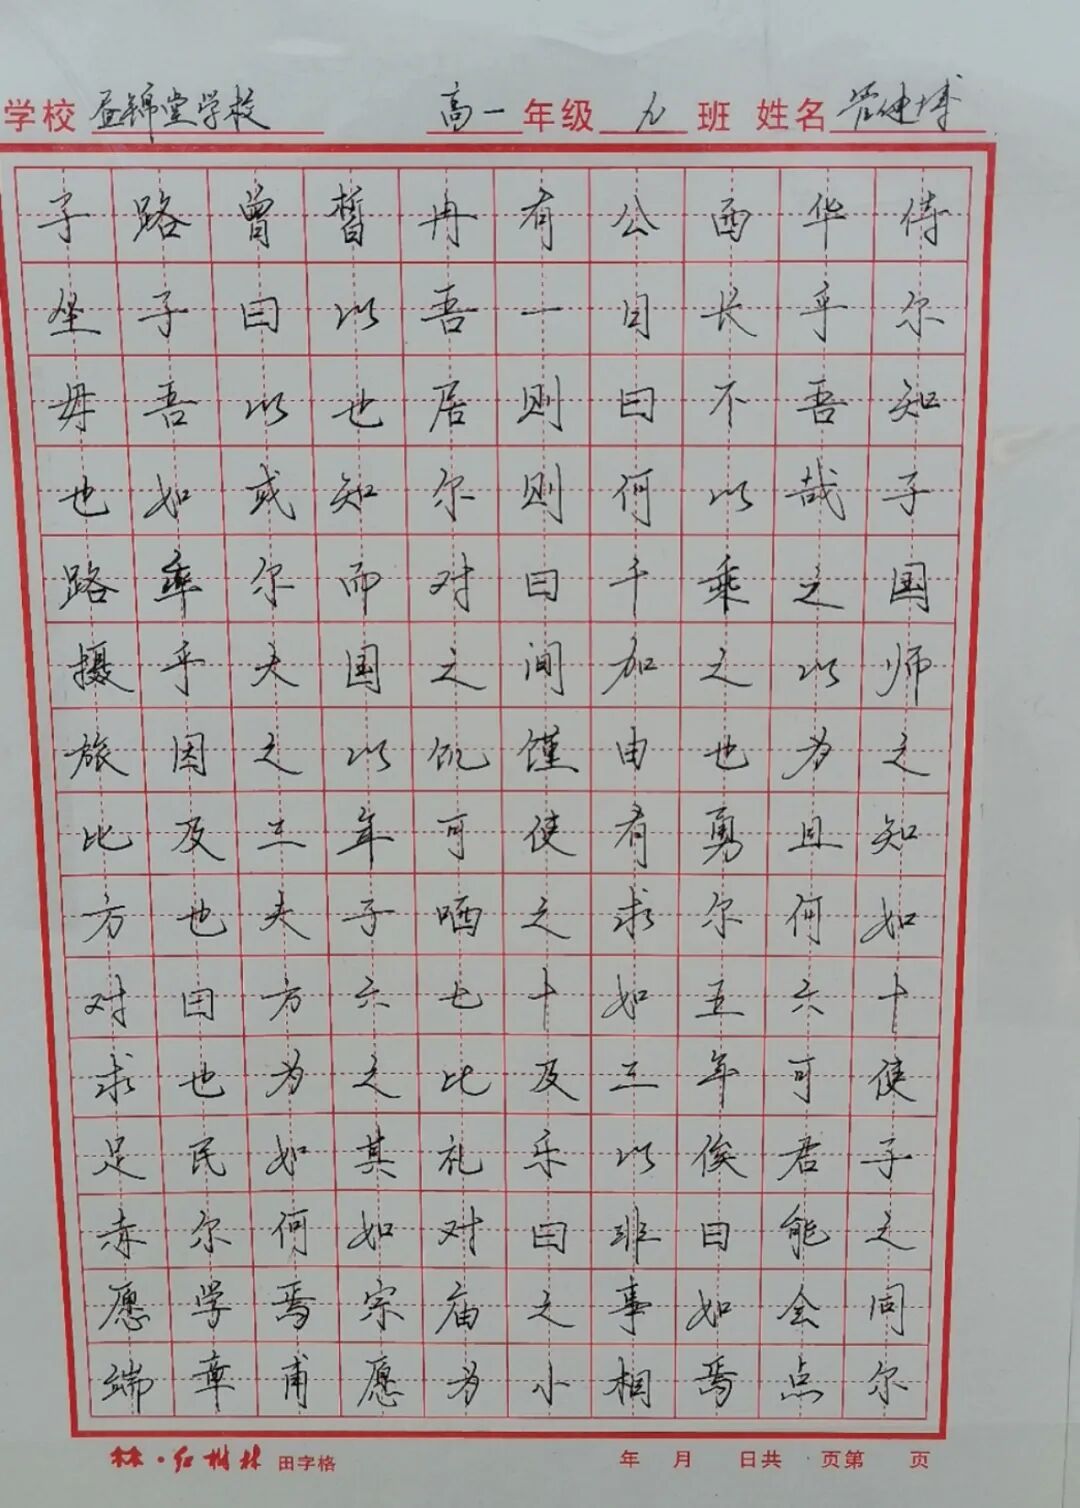 学校 昼锦堂学校 高一 年级 九 班 姓名 管健博
子路曾皙冉有公西华侍
坐子曰以吾一日长乎尔
毋吾以也居则曰不吾知
也如或知尔则何以哉子
路率尔而对曰千乘之国
摄乎大国之间加之以师
旅因之以饥馑由也为之
比及三年可使有勇且知
方也夫子哂之求尔何如
对曰方六七十如五六十
求也为之比及三年可使
足民如其礼乐以俟君子
赤尔何如对曰非曰能之
愿学焉宗庙之事如会同
端章甫愿为小相焉点尔
林·红树林 田字格 年 月 日共 页第 页